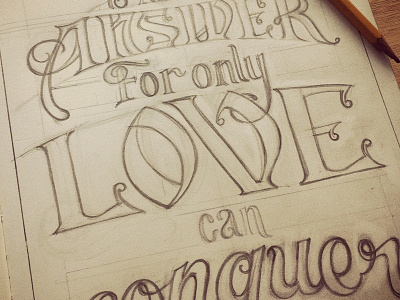 ANSWER
For only
LOVE
can
conquer